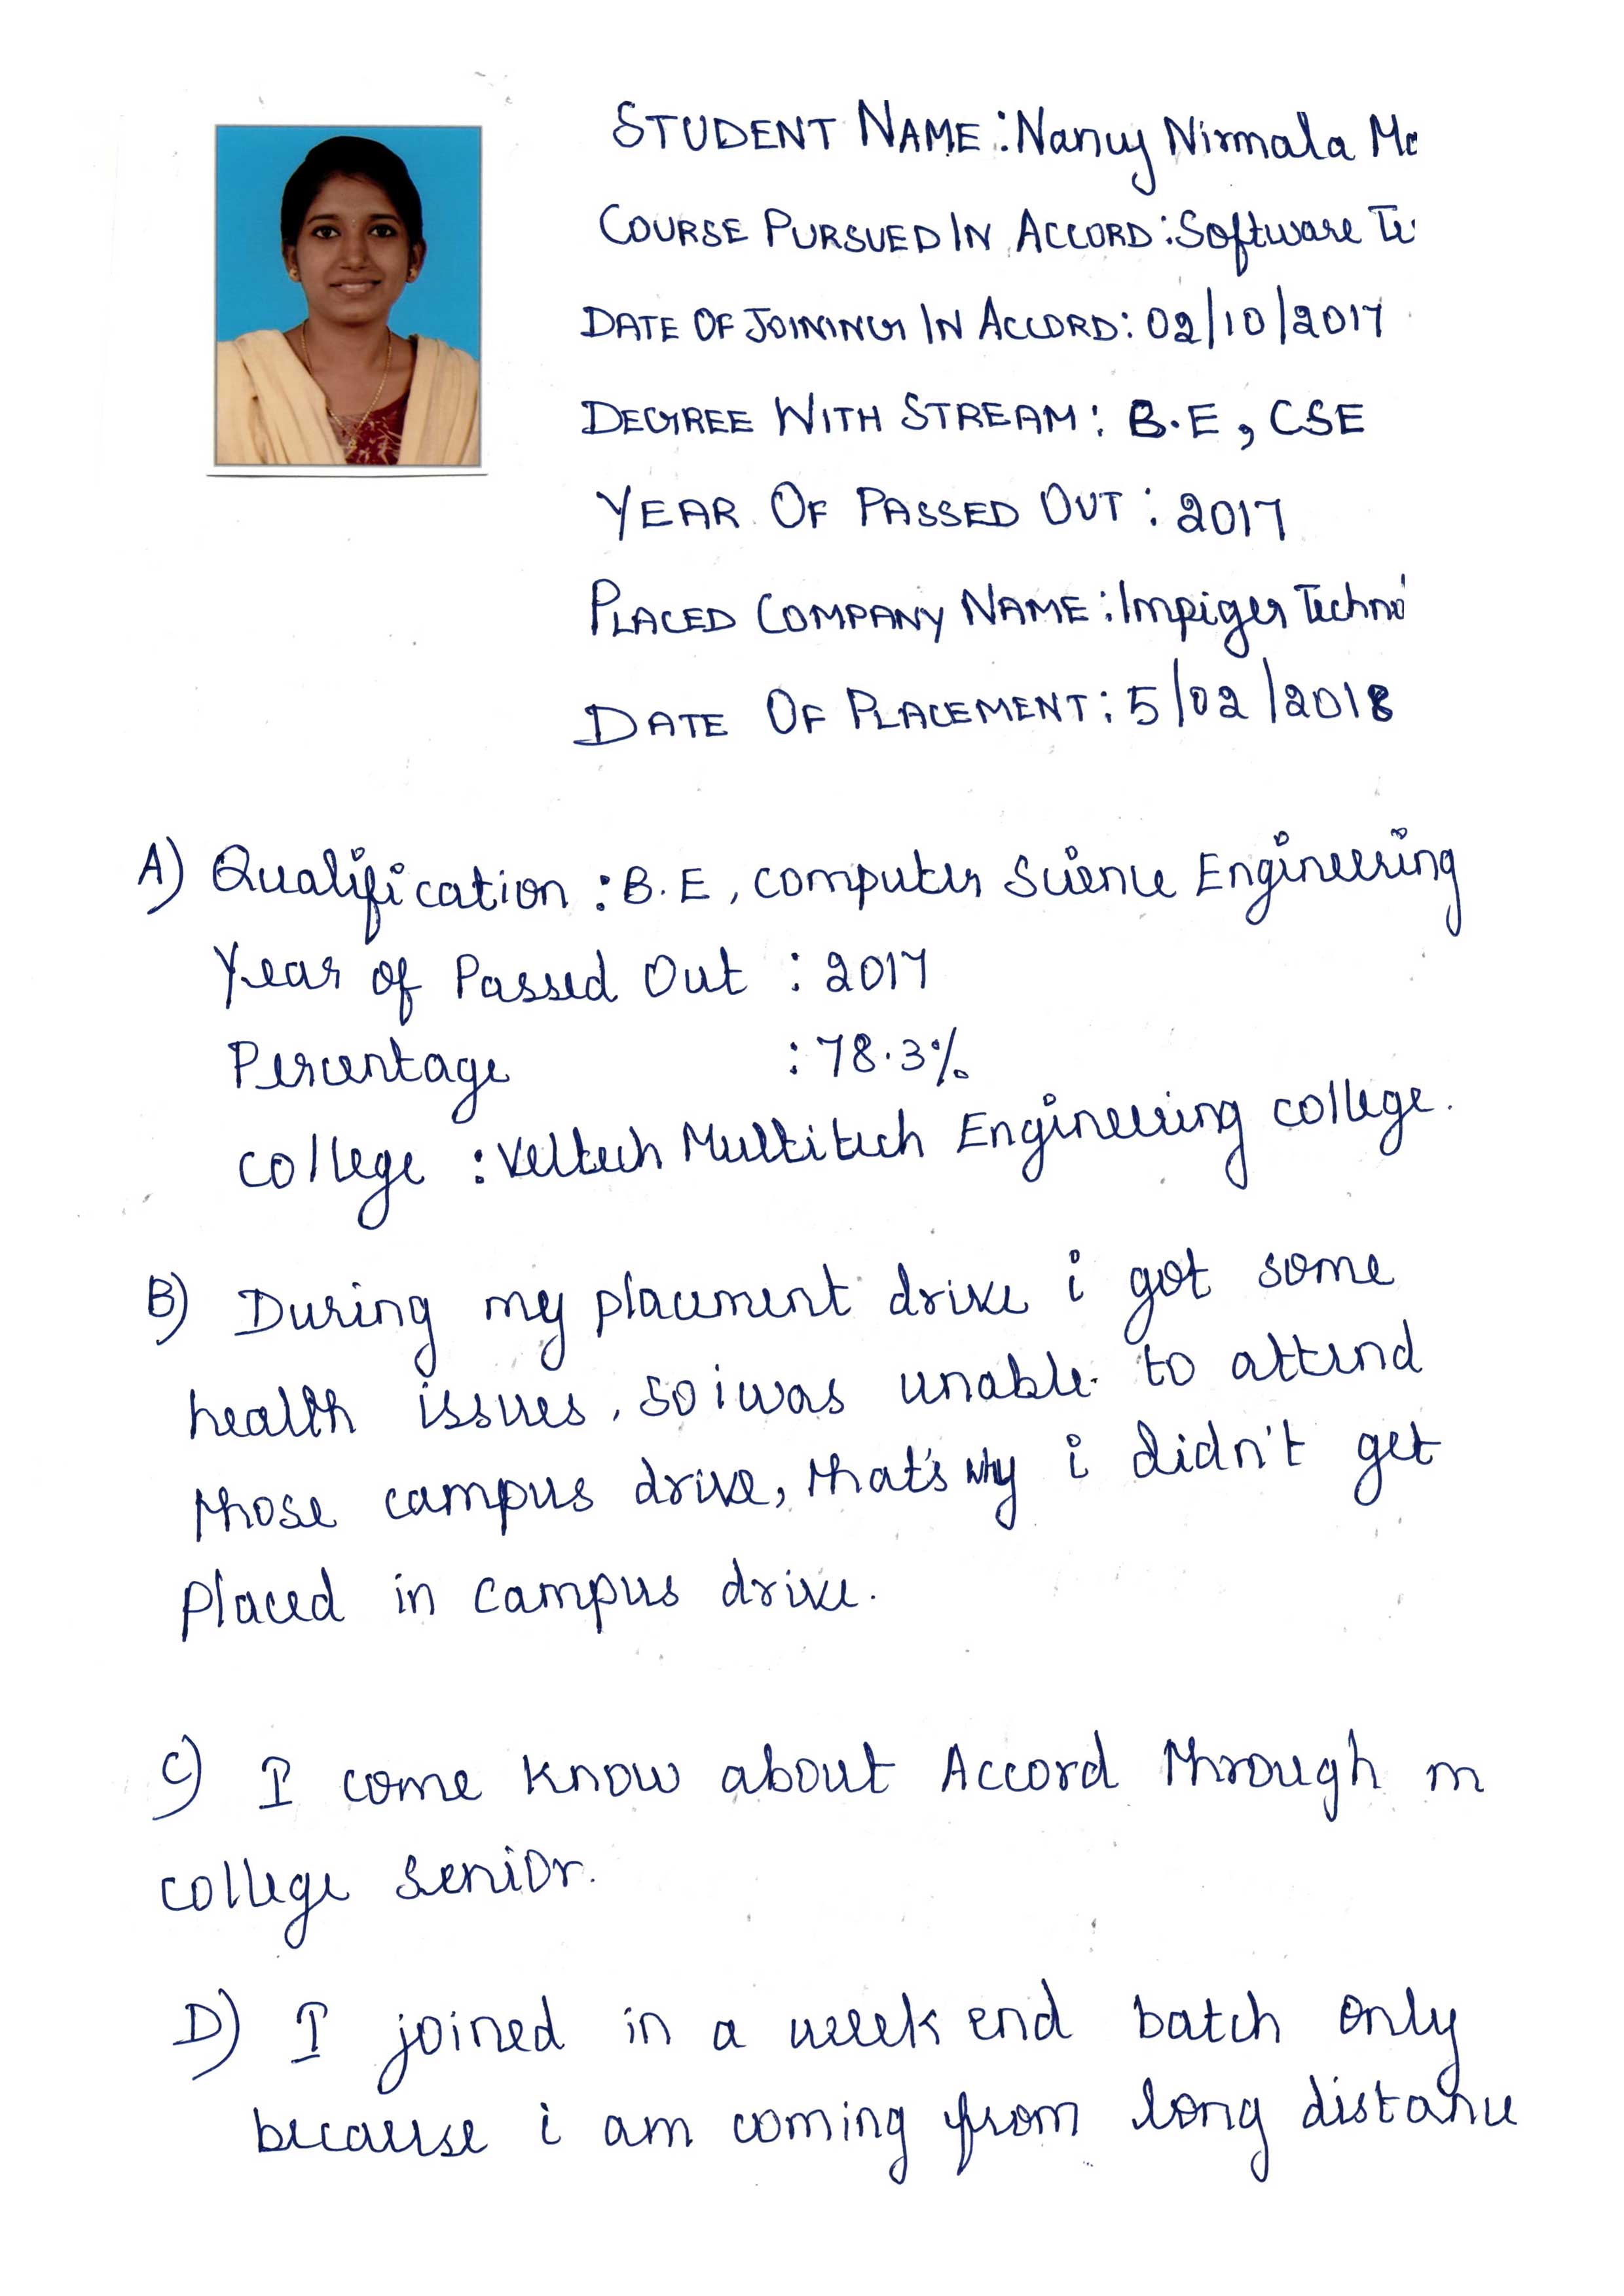 STUDENT NAME : Nancy Nirmala Ma
COURSE PURSUED IN ACCORD : Software Te
DATE OF JOINING IN ACCORD : 02/10/2017
DEGREE WITH STREAM : B.E, CSE
YEAR OF PASSED OUT : 2017
PLACED COMPANY NAME : Impiger Techno
DATE OF PLACEMENT : 5/02/2018
A) Qualification : B.E, computer Science Engineering
Year of Passed Out : 2017
Percentage : 78.3%
college : Veltech Multitech Engineering college.
B) During my placement drive i got some
health issues, so i was unable to attend
those campus drive, that's why i didn't get
placed in campus drive.
C) I come know about Accord through m
college senior.
D) I joined in a week end batch only
because i am coming from long distance